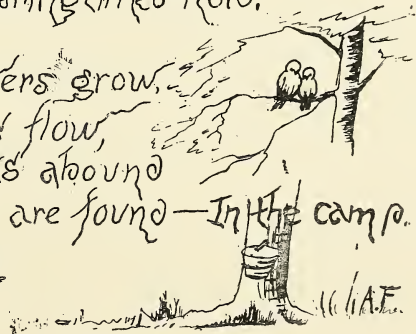 ers grow,
flow,
s abound
are found—In the camp.
A.F.